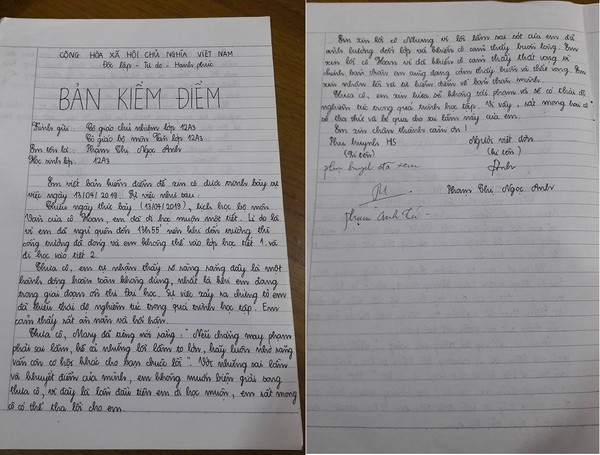 CỘNG HÒA XÃ HỘI CHỦ NGHĨA VIỆT NAM
Độc lập - Tự do - Hạnh phúc
BẢN KIỂM ĐIỂM
Kính gửi: Cô giáo chủ nhiệm lớp 12A3
Cô giáo bộ môn Văn lớp 12A3
Em tên là: Phạm Thị Ngọc Anh
Học sinh lớp: 12A3
Em viết bản kiểm điểm để xin cô được trình bày sự
việc ngày 13/04/2019. Sự việc như sau:
Chiều ngày thứ bảy (13/04/2019), lịch học bộ môn
Văn của cô Hoan, em đã đi học muộn một tiết. Lí do là
vì em đã ngủ quên đến 13h55' nên khi đến trường thì
cổng trường đã đóng và em không thể vào lớp học tiết 1 và
đi học vào tiết 2.
Thưa cô, em tự nhận thấy rõ ràng rằng đây là một
hành động hoàn toàn không đúng, nhất là khi em đang
trong giai đoạn ôn thi Đại học. Sự việc xảy ra chứng tỏ em
đã thiếu thái độ nghiêm túc trong quá trình học tập. Em
cảm thấy rất ăn năn và hối hận.
Thưa cô, Mary đã từng nói rằng: "Nếu chẳng may phạm
phải sai lầm, kể cả những lỗi lầm to lớn, hãy luôn nhớ rằng
vẫn còn cơ hội khác cho bạn chuộc lỗi". Với những sai lầm
và khuyết điểm của mình, em không muốn biện giải song
thưa cô, vì đây là lần đầu tiên em đi học muộn, em rất mong
cô có thể tha lỗi cho em.
Em xin lỗi cô Nhung vì lỗi lầm sai sót của em đã
ảnh hưởng đến lớp và khiến cô cảm thấy buồn lòng. Em
xin lỗi cô Hoan vì đã khiến cô cảm thấy thất vọng vì
chính bản thân em cũng đang cảm thấy buồn và thất vọng. Em
xin nhận lỗi và tự kiểm điểm về bản thân mình.
Thưa cô, em xin hứa sẽ không tái phạm và sẽ có thái độ
nghiêm túc trong quá trình học tập. Vì vậy, rất mong hai cô
sẽ tha thứ và bỏ qua cho sai lầm này của em.
Em xin chân thành cảm ơn!
Phụ huynh HS Người viết đơn
(Kí tên) (Kí tên)
phụ huynh đã xem Anh
Phạm Anh Tú Phạm Thị Ngọc Anh